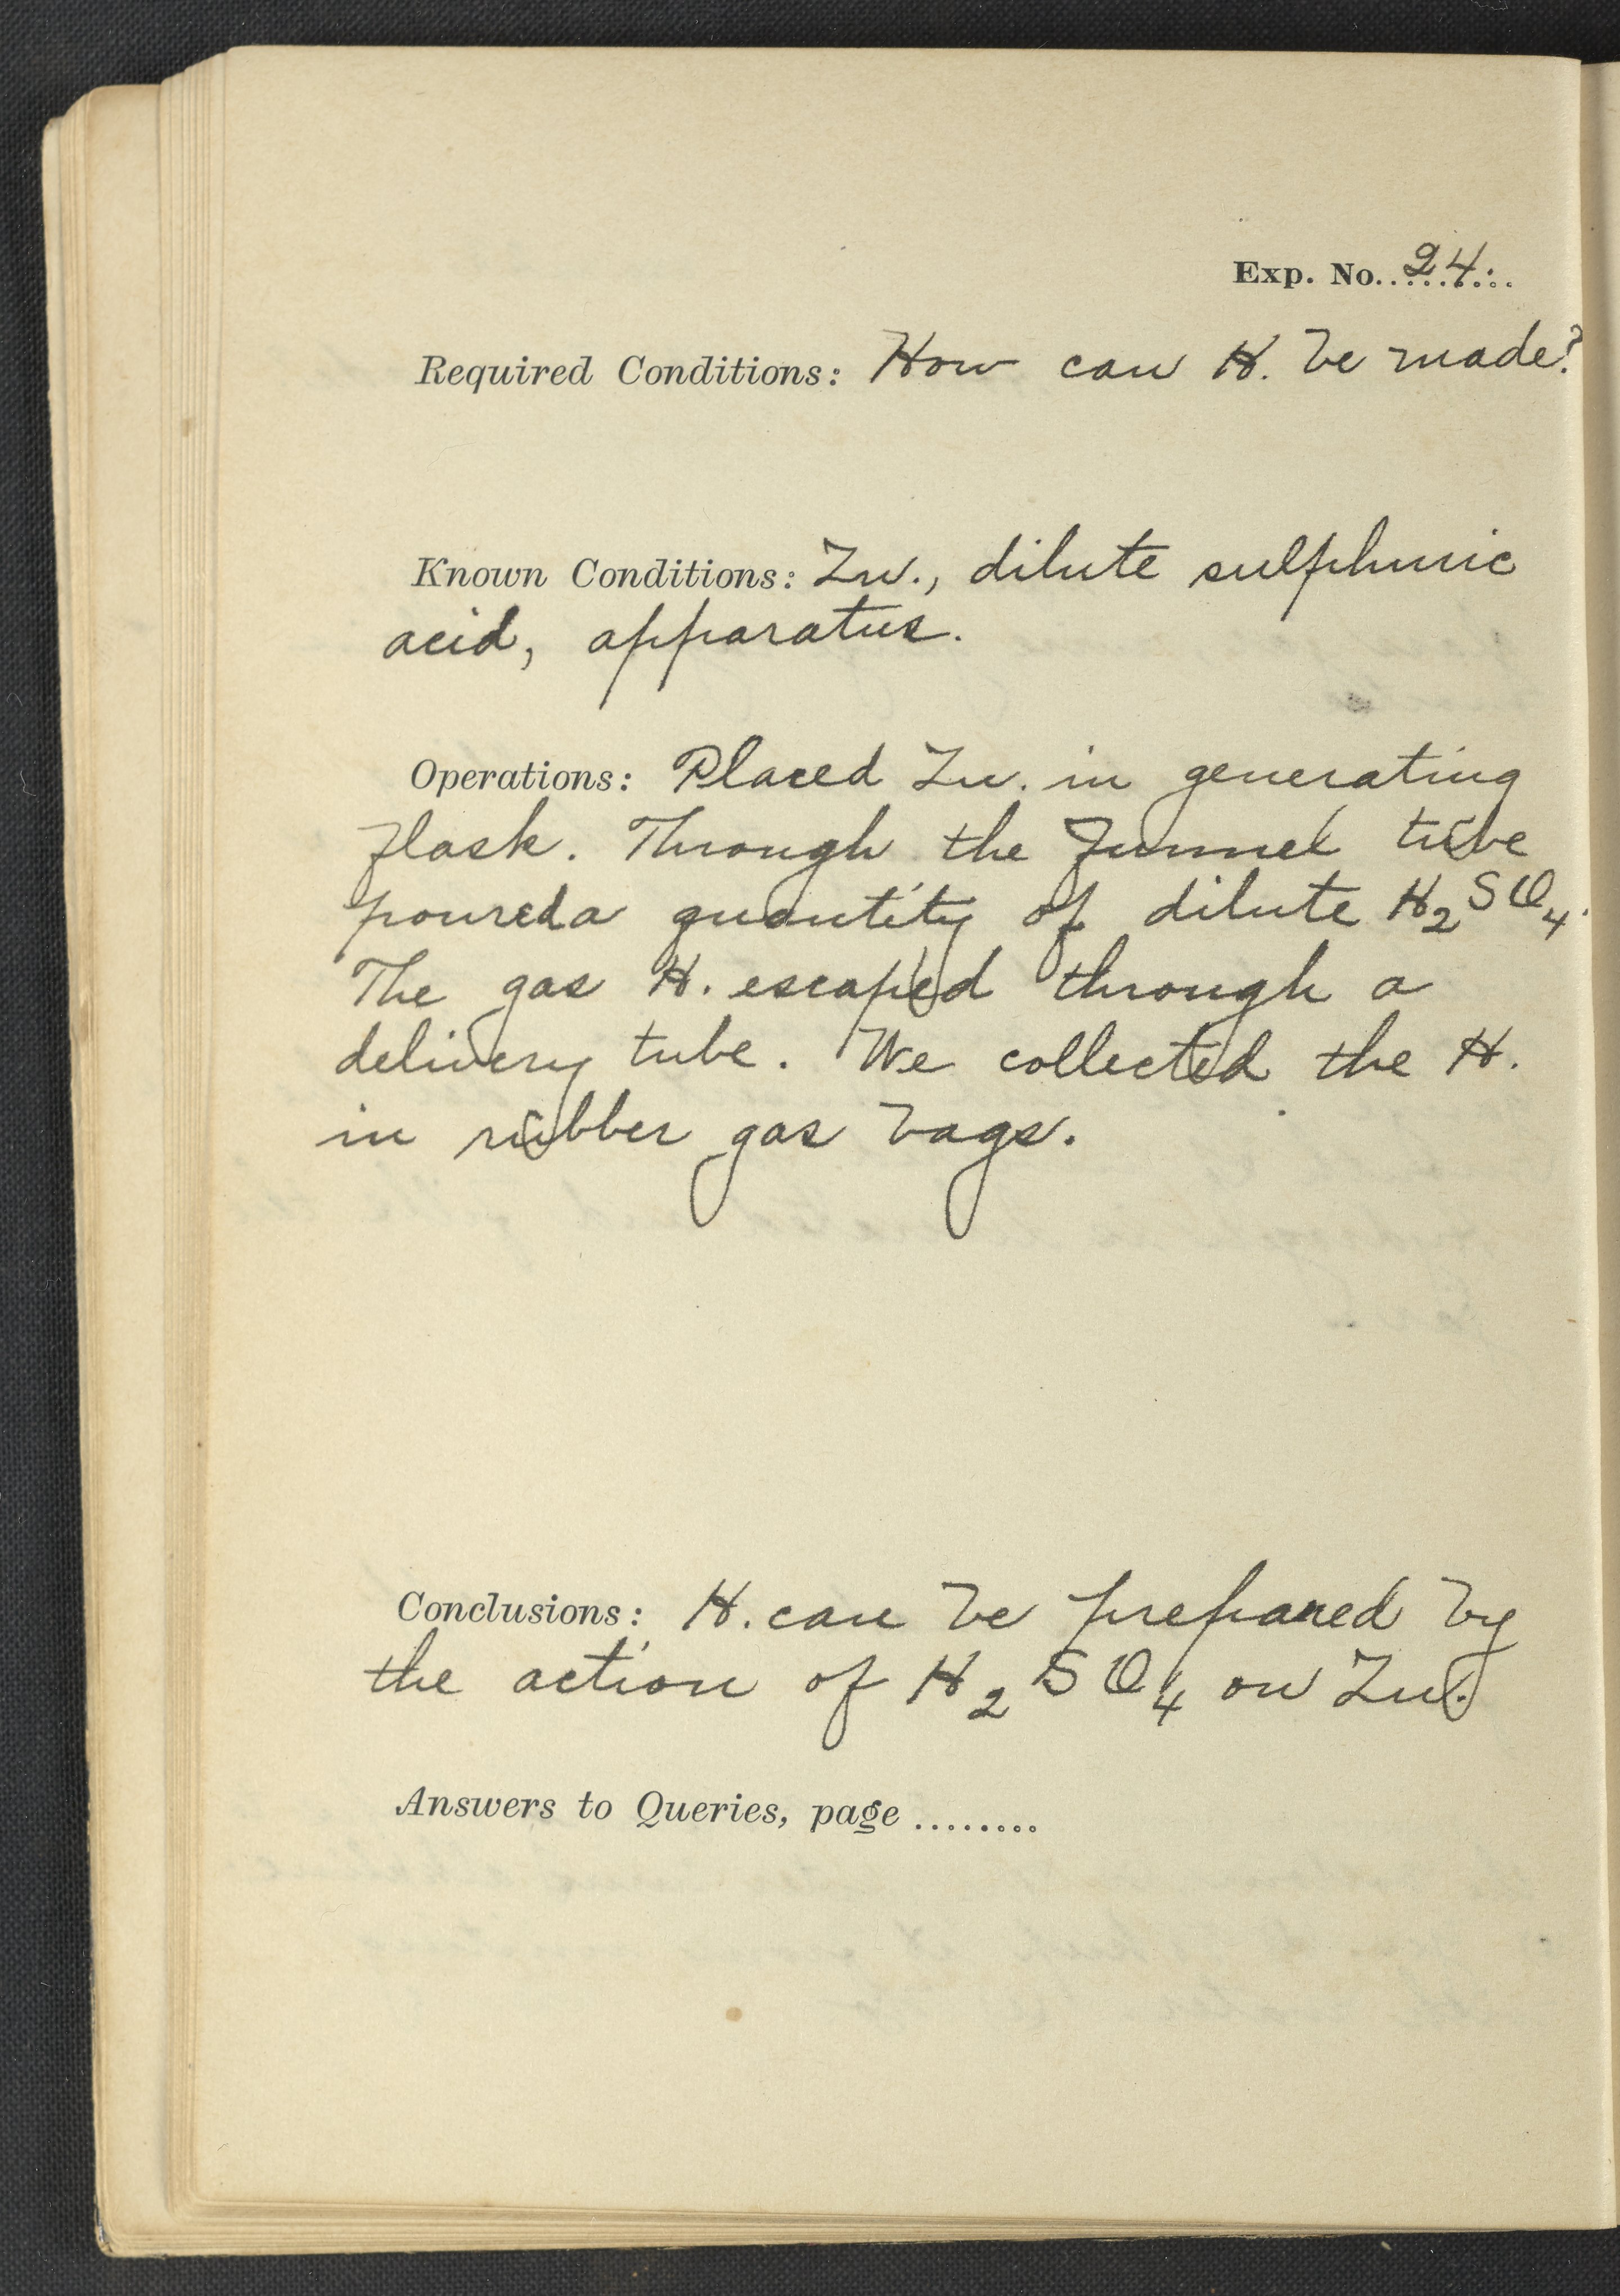 Exp. No. 24.
Required Conditions: How can H. be made?
Known Conditions: Zn., dilute sulphuric
acid, apparatus.
Operations: Placed Zn. in generating
flask. Through the funnel tube
poured a quantity of dilute H₂SO₄.
The gas H. escaped through a
delivery tube. We collected the H.
in rubber gas bags.
Conclusions: H. can be prepared by
the action of H₂SO₄ on Zn.
Answers to Queries, page ........